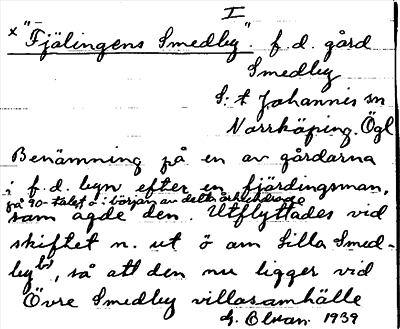 I
x "Fjälingens Smedby" f.d. gård
Smedby
S:t Johannis sn
Norrköping. Ögl
Benämning på en av gårdarna
i f.d. byn efter en fjärdingsman,
på 90-talet o. i början av detta århundrade
som ägde den. Utflyttades vid
skiftet n. ut ö om Lilla Smed-
by, så att den nu ligger vid
Övre Smedby villasamhälle
1939